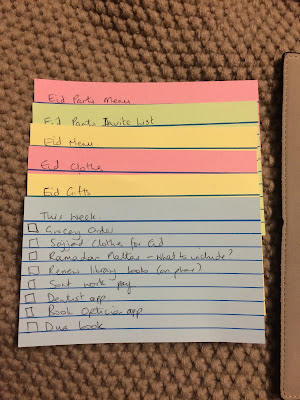 Eid Party Menu
Eid Party Invite List
Eid Menu
Eid Clothes
Eid Gifts
This Week
Grocery Order
Sajjad Clothes for Eid
Ramadan Platter - What to include?
Renew library books (on phone)
Sort work pay
Dentist app
Book Optician app
Dua book